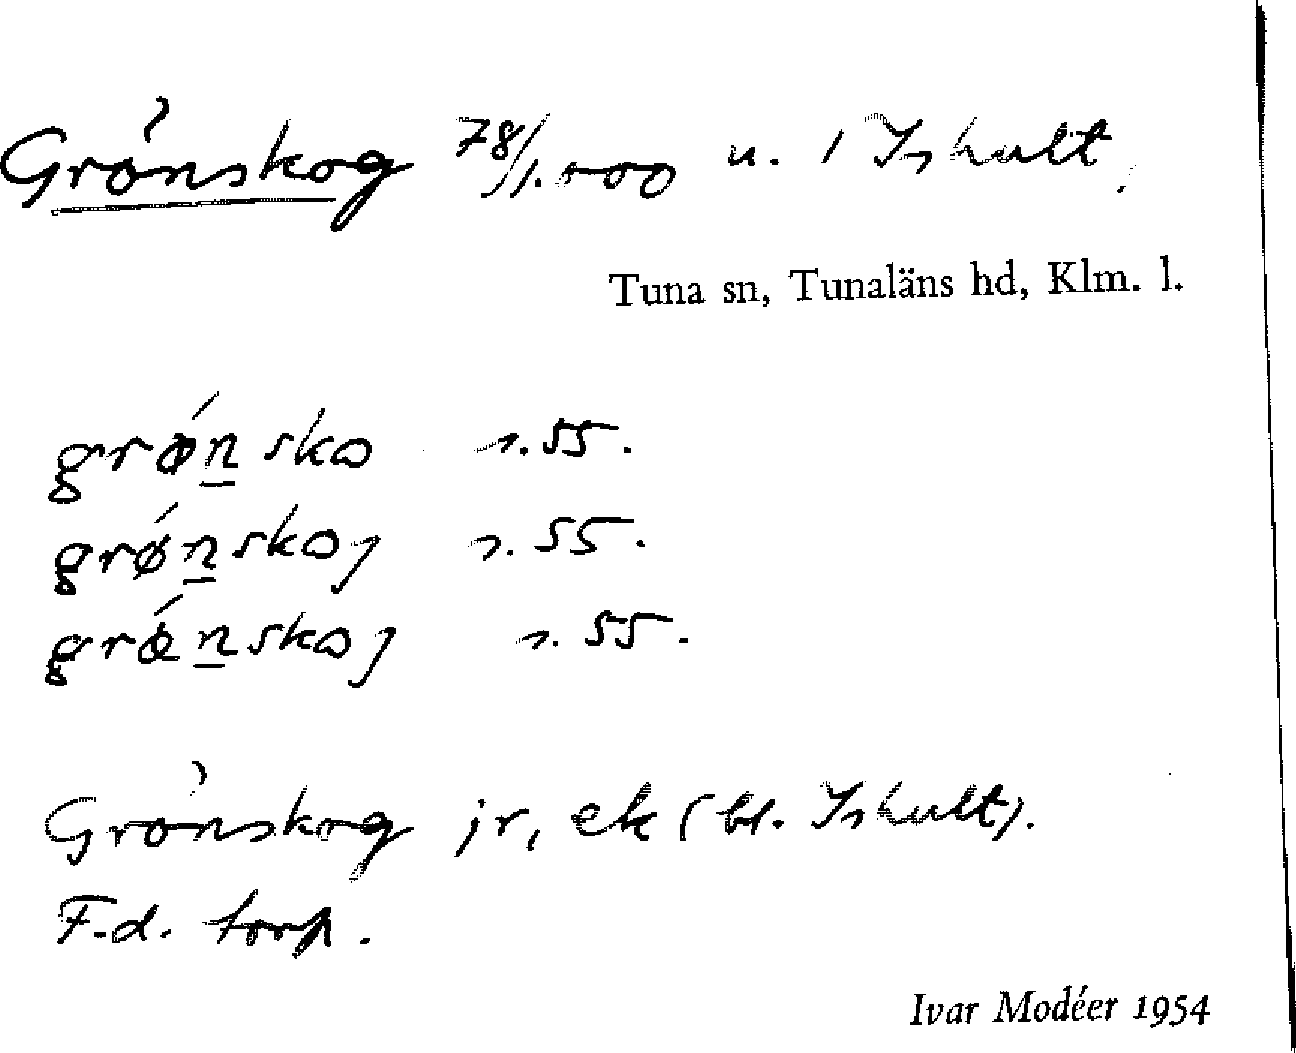 Grönskog 78/1.000 u. 1 Ishult,
Tuna sn, Tunaläns hd, Klm. l.
grǿn sko s. 55.
grǿnskoȷ s. 55.
grǿnskoȷ s. 55.
Grönskog jr, ek (bl. Ishult).
F.d. torp.
Ivar Modéer 1954